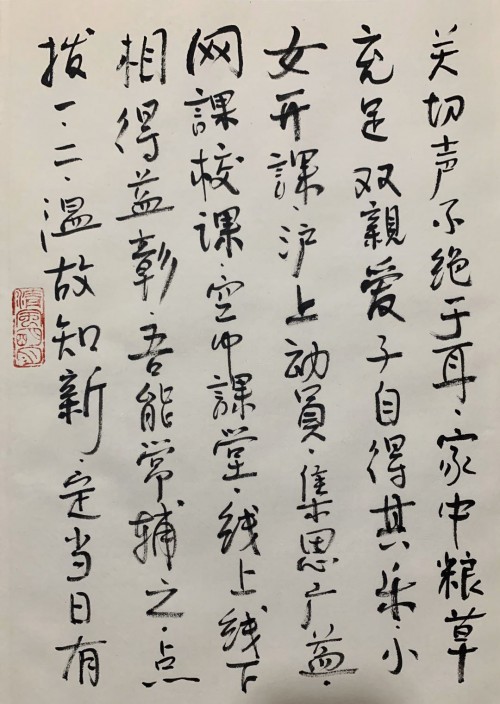 关切声不绝于耳、家中粮草
充足双親爱子自得其乐、小
女开課、沪上动員、集思广益、
网課校课、空中課堂、线上线下
相得益彰、吾能常辅之、点
拨一、二、温故知新、定当日有